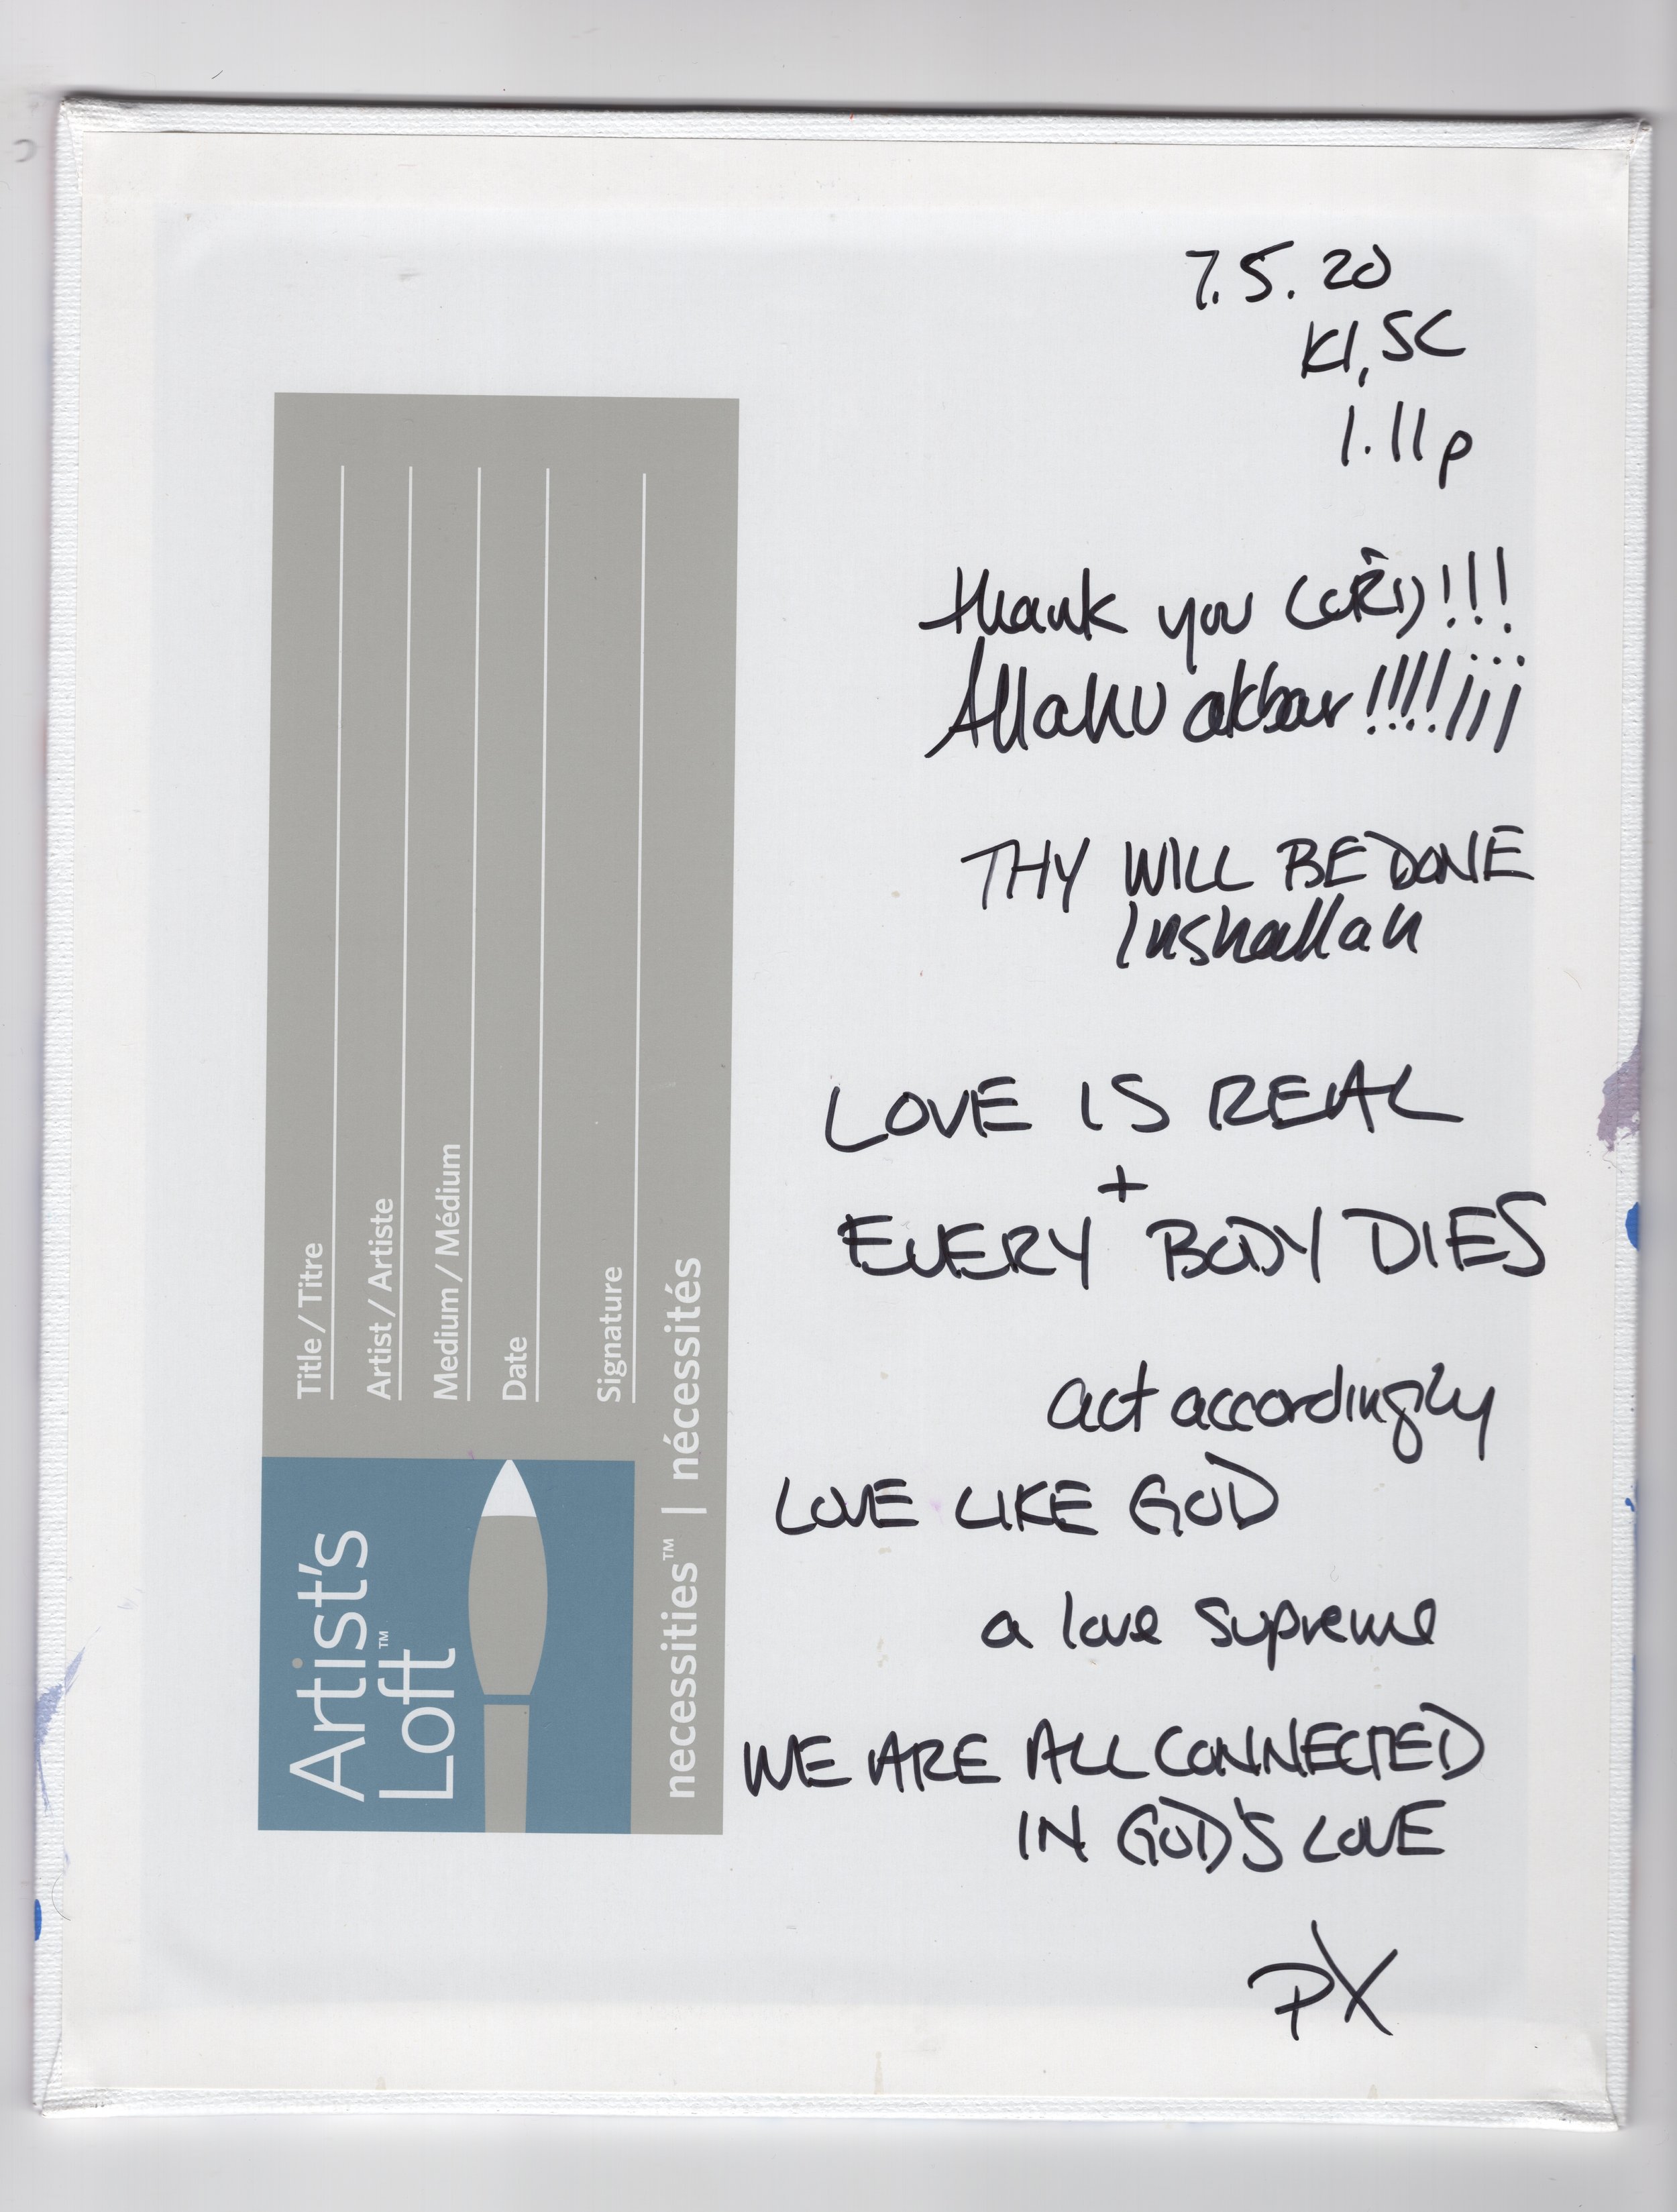 7.5.20
KI, SC
1.11p
thank you LORD!!!
Allahu akbar!!!!¡¡¡
THY WILL BE DONE
Inshallah
LOVE IS REAL
+
EVERY BODY DIES
act accordingly
LOVE LIKE GOD
a love supreme
WE ARE ALL CONNECTED
IN GOD'S LOVE
PX
Title / Titre
Artist / Artiste
Medium / Médium
Date
Signature
Artist's
Loft™
necessities™ | nécessités